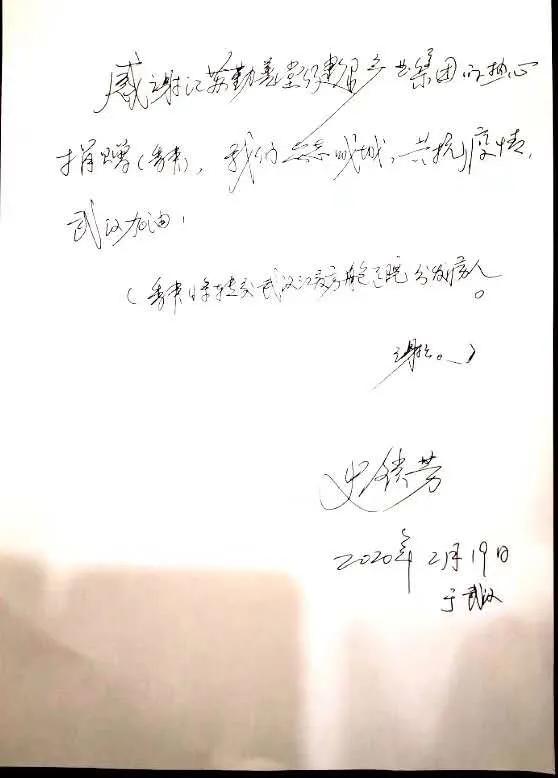 感谢江苏勤善堂健康产业集团的热心
捐赠(香囊)，我们众志成城，共抗疫情，
武汉加油，
(香囊将转交武汉江夏方舱医院分发病人。
谢谢。)
史锁芳
2020年2月19日
于武汉